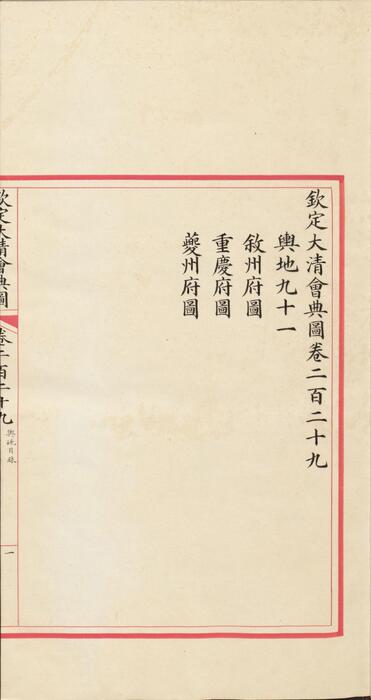 欽定大清會典圖卷二百二十九
輿地九十一
敘州府圖
重慶府圖
夔州府圖
欽定大清會典圖
卷二百二十九
輿地目錄
一